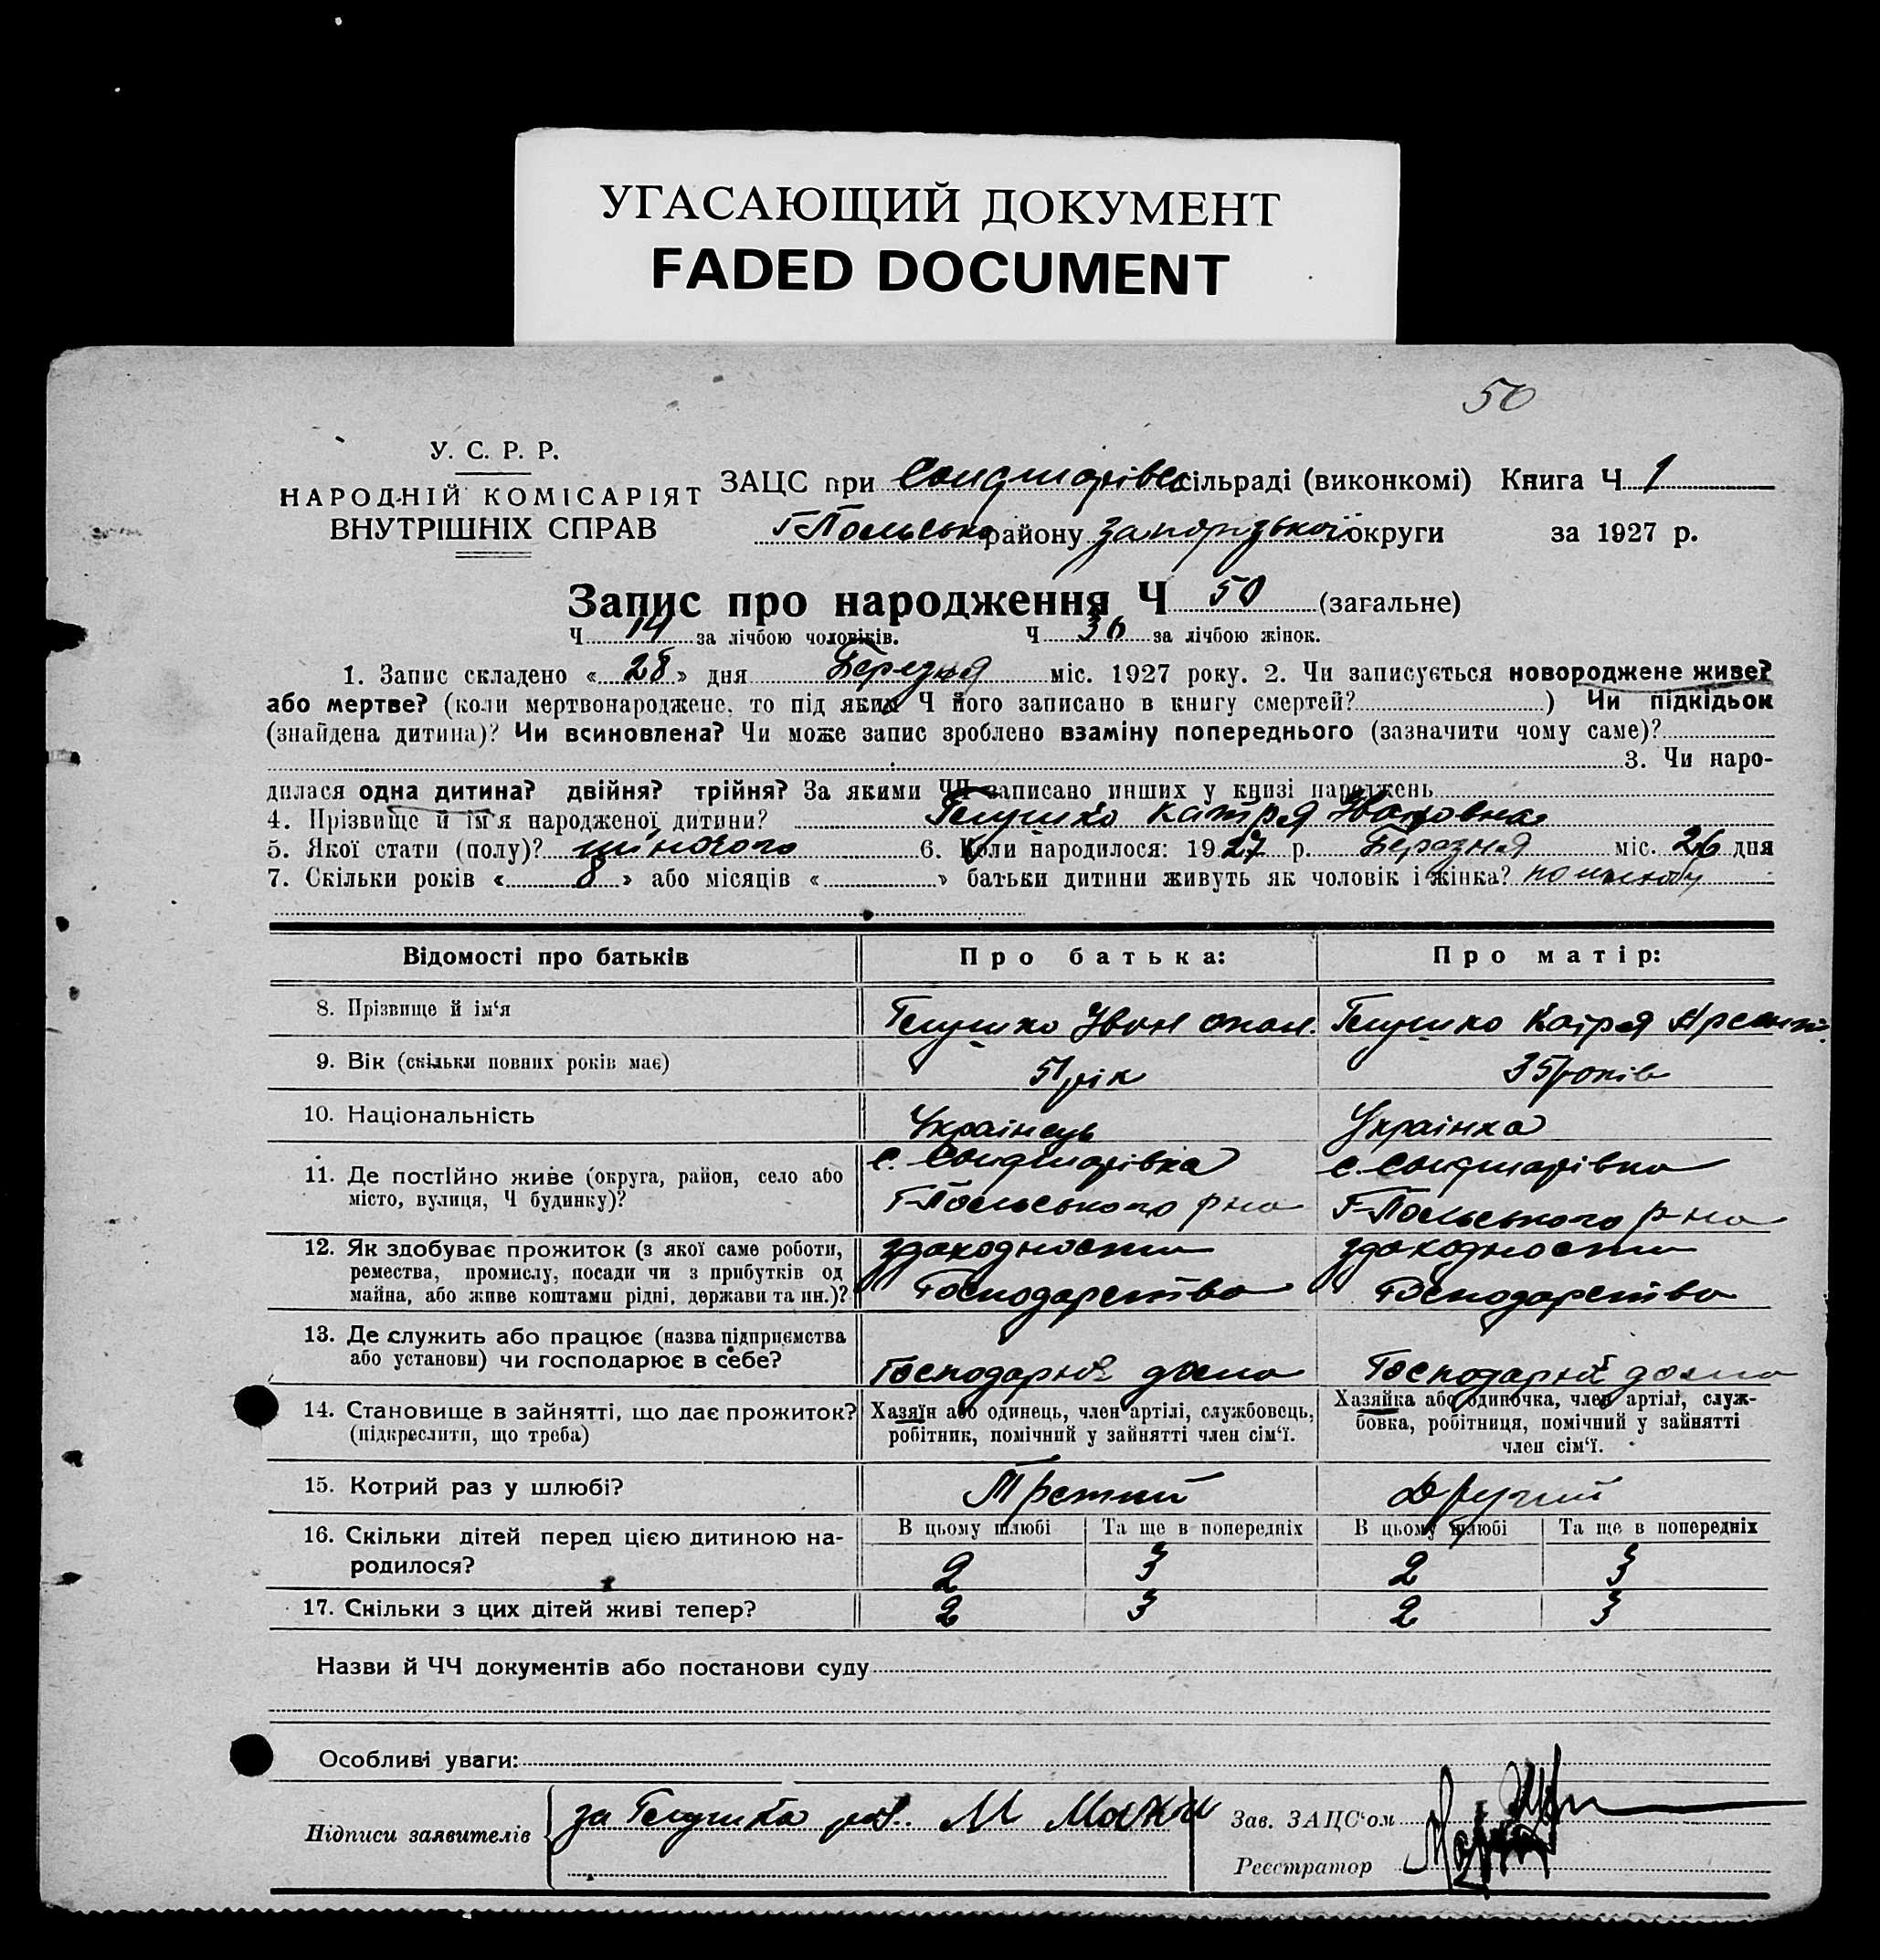 УГАСАЮЩИЙ ДОКУМЕНТ
FADED DOCUMENT
50
У. С. Р. Р.
НАРОДНІЙ КОМІСАРІЯТ
ВНУТРІШНІХ СПРАВ
ЗАЦС при сільраді (виконкомі) Книга Ч 1
Г Польсько району запорізької округи за 1927 р.
Запис про народження Ч 50 (загальне)
Ч 14 за лічбою чоловіків. Ч 36 за лічбою жінок.
1. Запис складено « 28 » дня Березня міс. 1927 року. 2. Чи записується новороджене живе?
або мертве? (коли мертвонароджене, то під яким Ч його записано в книгу смертей? ) Чи підкідьок
(знайдена дитина)? Чи всиновлена? Чи може запис зроблено взаміну попереднього (зазначити чому саме)?
3. Чи наро-
дилася одна дитина? двійня? трійня? За якими ЧЧ записано инших у книзі народжень
4. Прізвище й ім'я народженої дитини? Катря Ивановна
5. Якої стати (полу)? жіночого 6. Коли народилося: 1927 р. Березня міс. 26 дня
7. Скільки років « 8 » або місяців « » батьки дитини живуть як чоловік і жінка?
Відомості про батьків
Про батька:
Про матір:
8. Прізвище й ім'я
Иван Опан.
Катря
9. Вік (скільки повних років має)
51 рік
35 років
10. Національність
Українець
Українка
11. Де постійно живе (округа, район, село або
місто, вулиця, Ч будинку)?
Г-Польського р-на
Г-Польського р-на
12. Як здобуває прожиток (з якої саме роботи,
ремества, промислу, посади чи з прибутків од
майна, або живе коштами рідні, держави та ин.)?
здоходности
Господарства
здоходности
Господарства
13. Де служить або працює (назва підприємства
або установи) чи господарює в себе?
Господарює дома
Господарює дома
14. Становище в зайнятті, що дає прожиток?
(підкреслити, що треба)
Хазяїн або одинець, член артілі, службовець,
робітник, помічний у зайнятті член сім'ї.
Хазяйка або одиночка, член артілі, служ-
бовка, робітниця, помічний у зайнятті
член сім'ї.
15. Котрий раз у шлюбі?
Третий
Другий
16. Скільки дітей перед цією дитиною на-
родилося?
В цьому шлюбі Та ще в попередніх В цьому шлюбі Та ще в попередніх
2 3 2 3
17. Скільки з цих дітей живі тепер?
2 3 2 3
Назви й ЧЧ документів або постанови суду
Особливі уваги:
Підписи заявителів
за
Зав. ЗАЦС'ом
Реєстратор